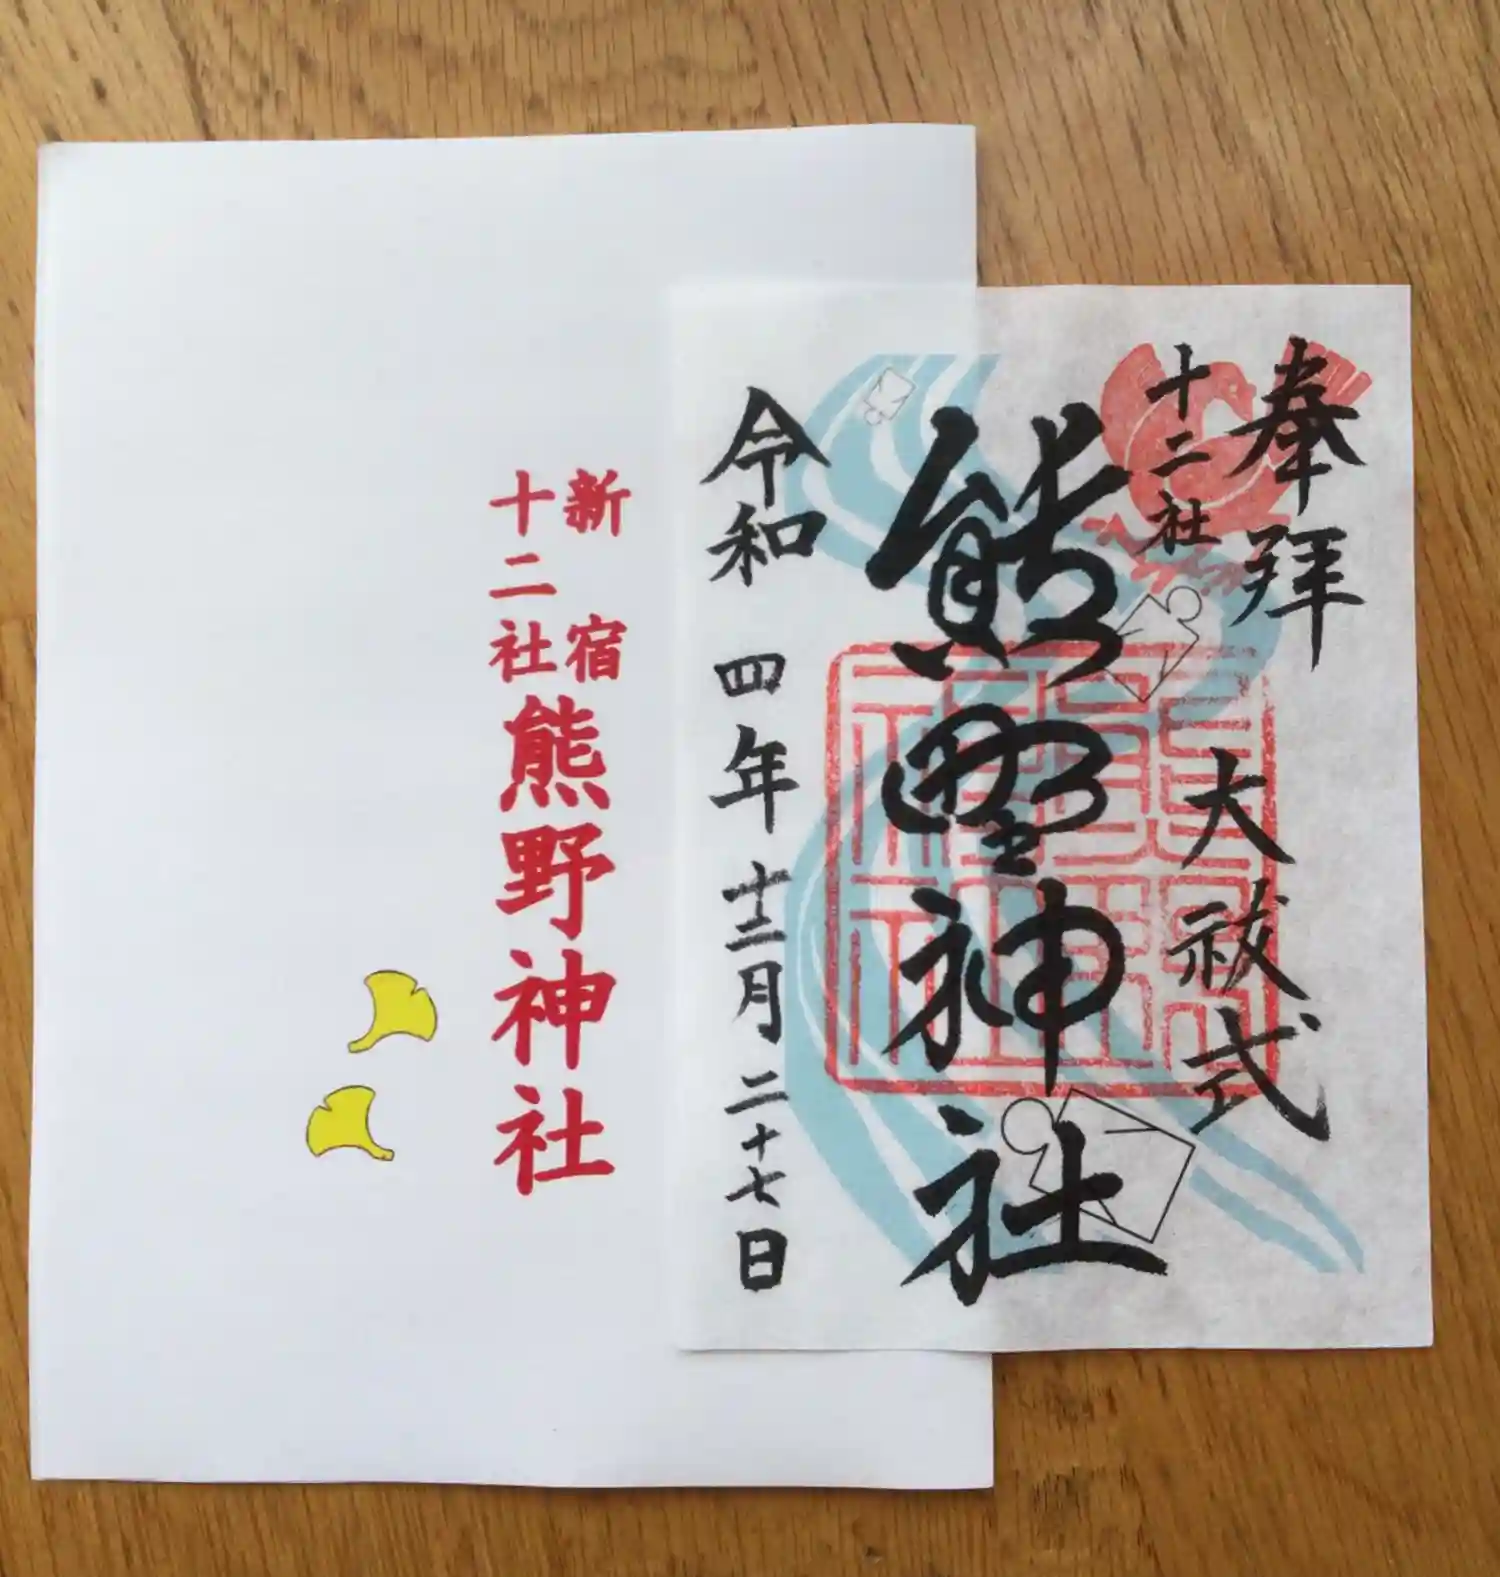 奉拝
十二社
大祓式
熊野神社
令和四年十二月二十七日
新宿
十二社
熊野神社